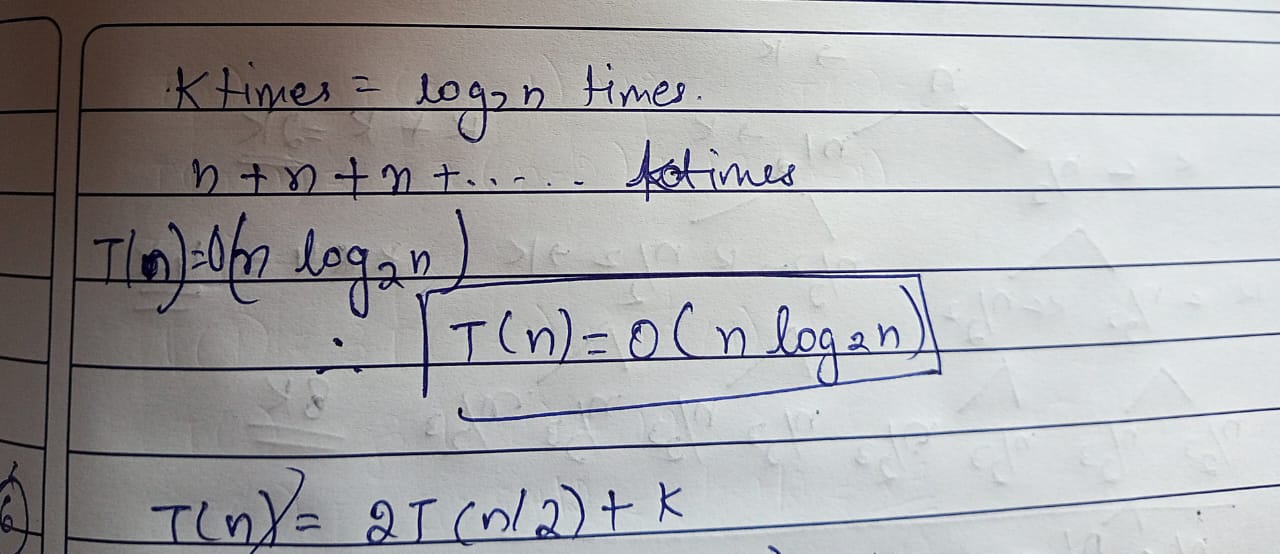 K times = log₂n times.
n + n + n + ...... k times
T(n)=O(n log₂n)
∴ T(n)=O(n log₂n)
6) T(n) = 2T(n/2) + K